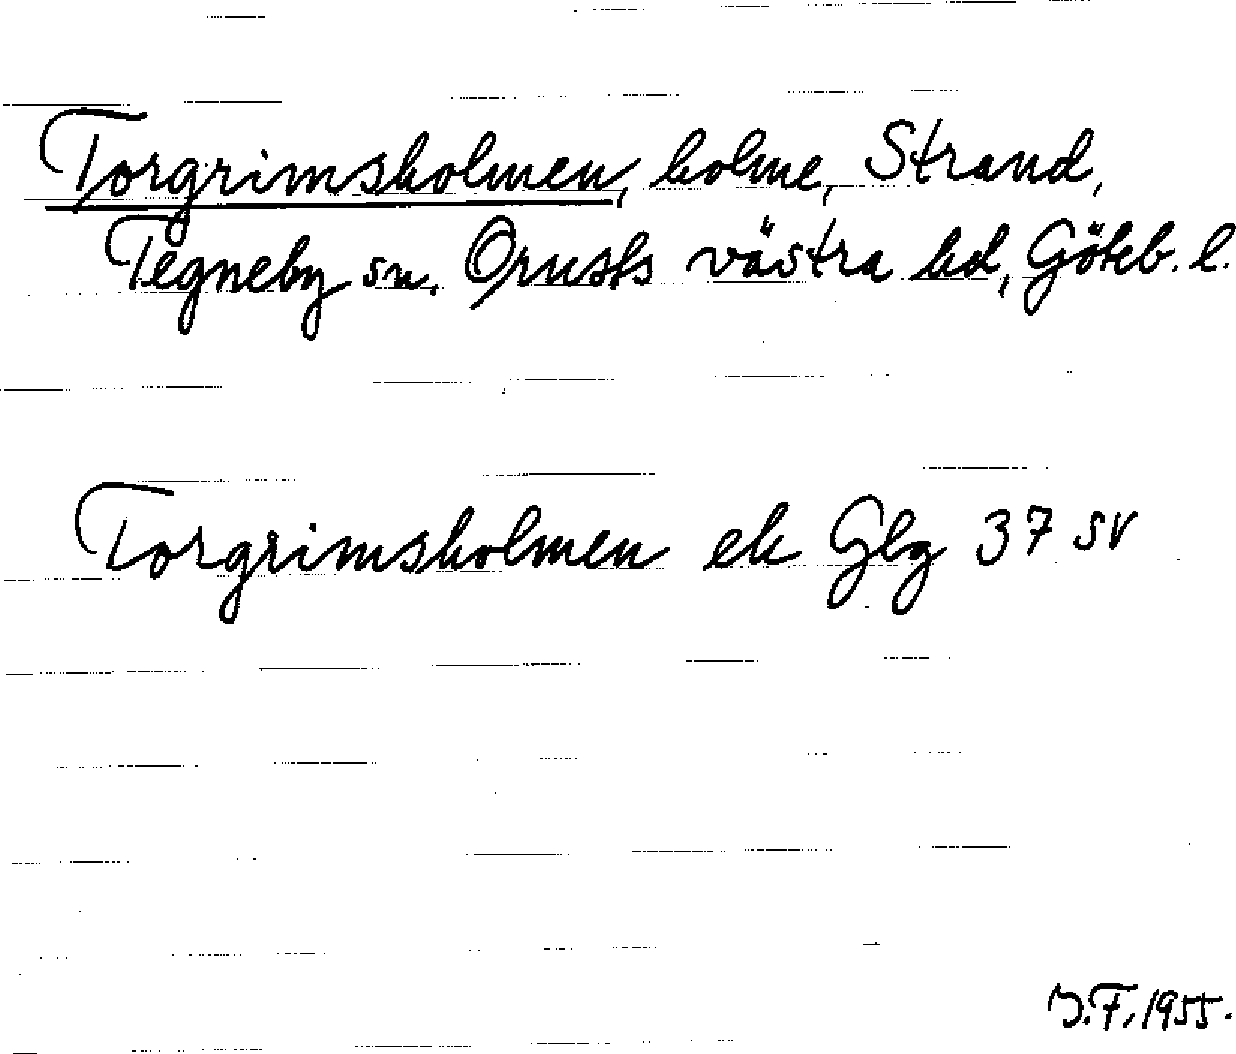 Torgrimsholmen, holme, Strand,
Tegneby sn. Orusts västra hd, Göteb. l.
Torgrimsholmen ek Gbg 37 SV
J.F. 1955.